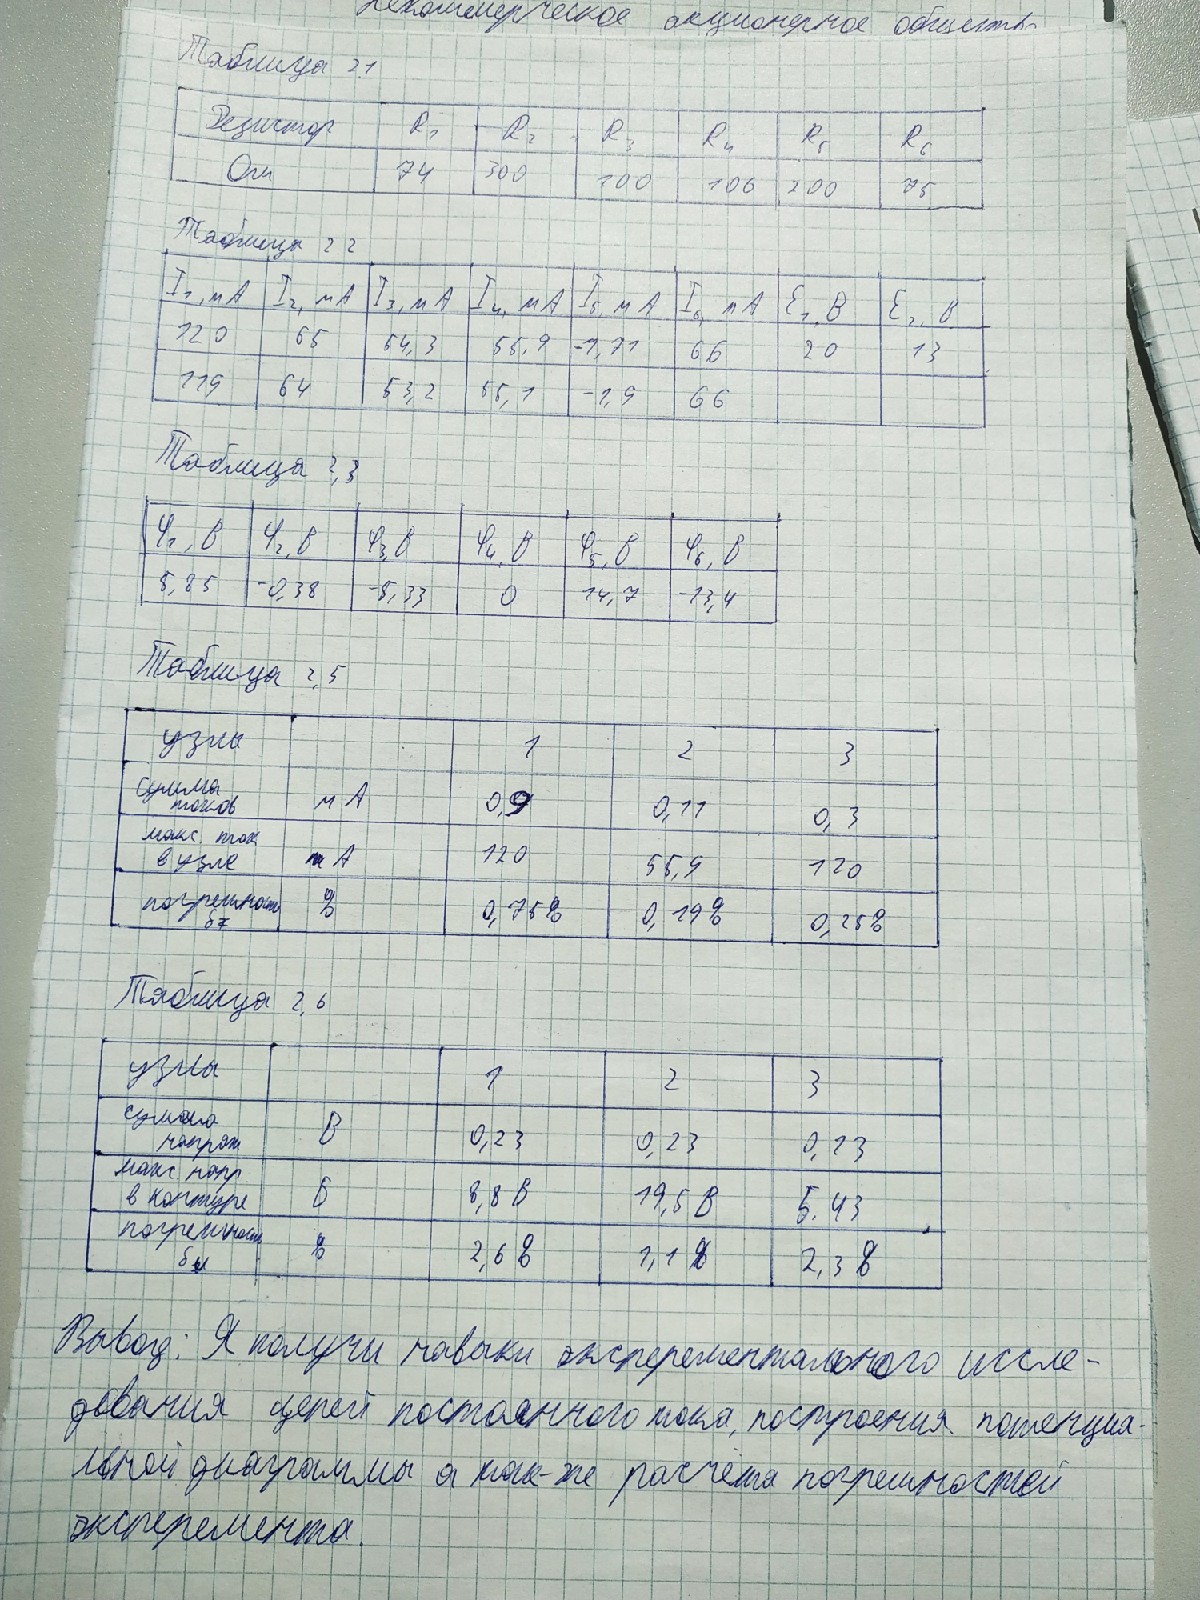 Некоммерческое акционерное общество
Таблица 2.1
Резистор R1 R2 R3 R4 R5 R6
Ом 74 300 100 106 200 75
Таблица 2 2
I1, мА I2, мА I3, мА I4, мА I5, мА I6, мА E1, В E2, В
120 65 54,3 55,9 -1,71 66 20 13
119 64 53,2 55,1 -1,9 66
Таблица 2,3
φ1, В φ2, В φ3, В φ4, В φ5, В φ6, В
5,85 -0,38 -5,33 0 14,7 -13,4
Таблица 2,5
узлы 1 2 3
сумма
токов мА 0,9 0,11 0,3
макс. ток
в узле мА 120 55,9 120
погрешность
δI % 0,75% 0,19% 0,25%
Таблица 2,6
узлы 1 2 3
сумма
напряж В 0,23 0,23 0,13
макс напр
в контуре В 8,8 В 19,5 В 5.43
погрешность
% 2,6% 1,1% 2,3%
Вывод: Я получи навыки эксперементального иссле-
дования цепей постоянного тока, построения потенциа-
льной диаграммы а так-же расчёта погрешностей
эксперемента.